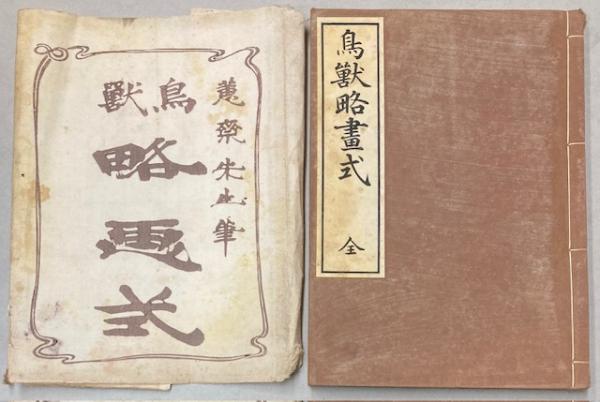 蕙斎先生筆
鳥獣
略画式
鳥獸略畫式
全